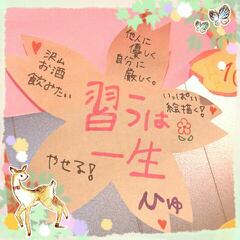 他人に
優しく
自分に
厳しく。
沢山
お酒
飲みたい
いっぱい
絵描く!
習うは
一生
やせる!
ひゅ